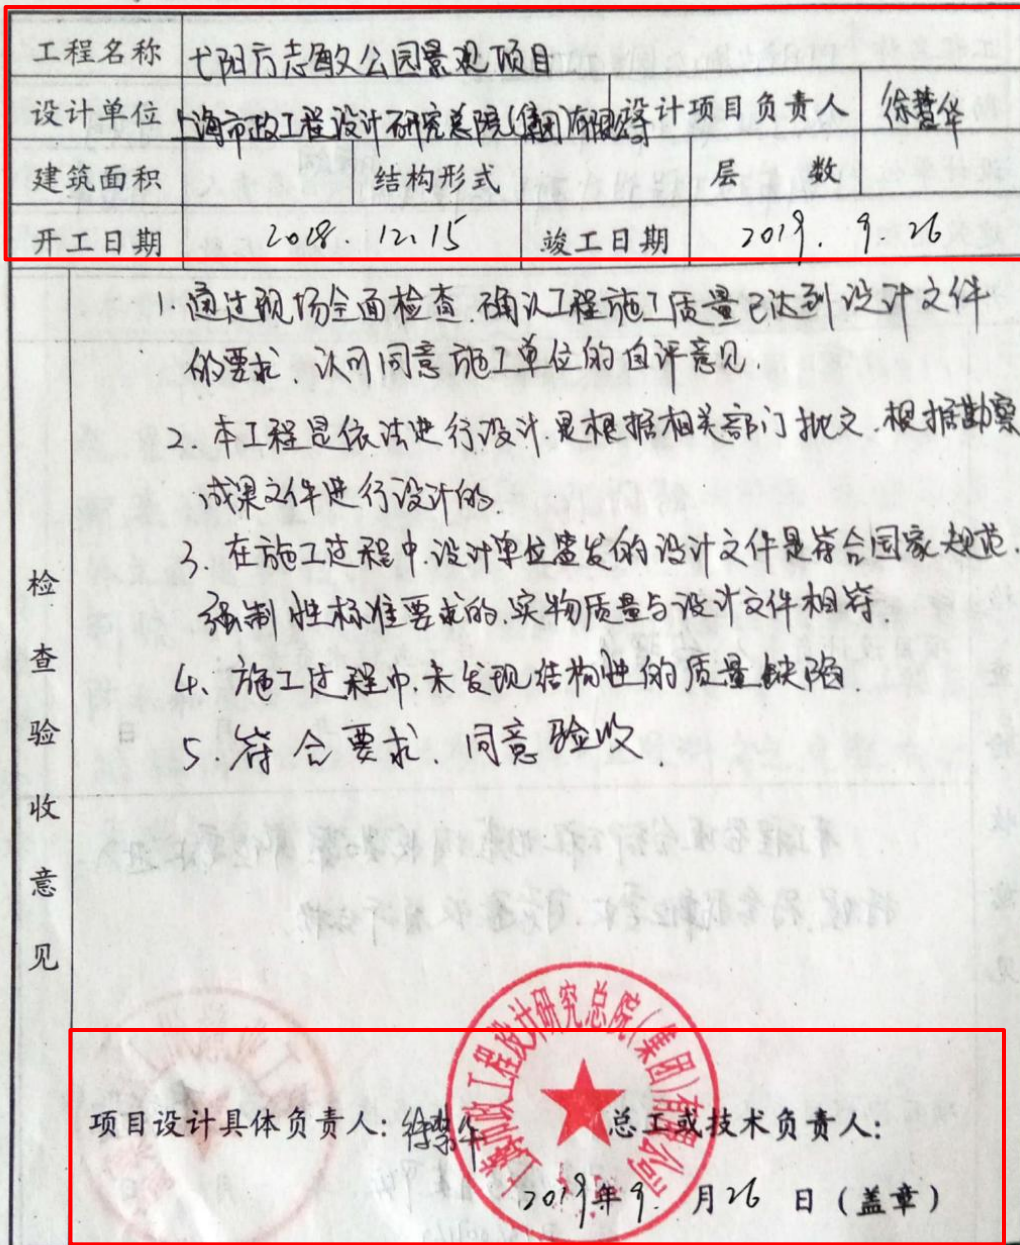 工程名称 弋阳方志敏公园景观项目
设计单位 上海市政工程设计研究总院(集团)有限公司 设计项目负责人 徐慧华
建筑面积 结构形式 层 数
开工日期 2018.12.15 竣工日期 2019.9.26
检查验收意见
1. 通过现场全面检查,确认工程施工质量已达到设计文件
的要求、认可同意施工单位的自评意见.
2. 本工程是依法进行设计,是根据相关部门批文、根据勘察
成果文件进行设计的.
3. 在施工过程中,设计单位签发的设计文件是符合国家规范、
强制性标准要求的,实物质量与设计文件相符.
4、施工过程中,未发现结构性的质量缺陷.
5. 符合要求、同意验收.
上海市政工程设计研究总院(集团)有限公司
项目设计具体负责人:徐慧华 总工或技术负责人:
2019年9月26日(盖章)